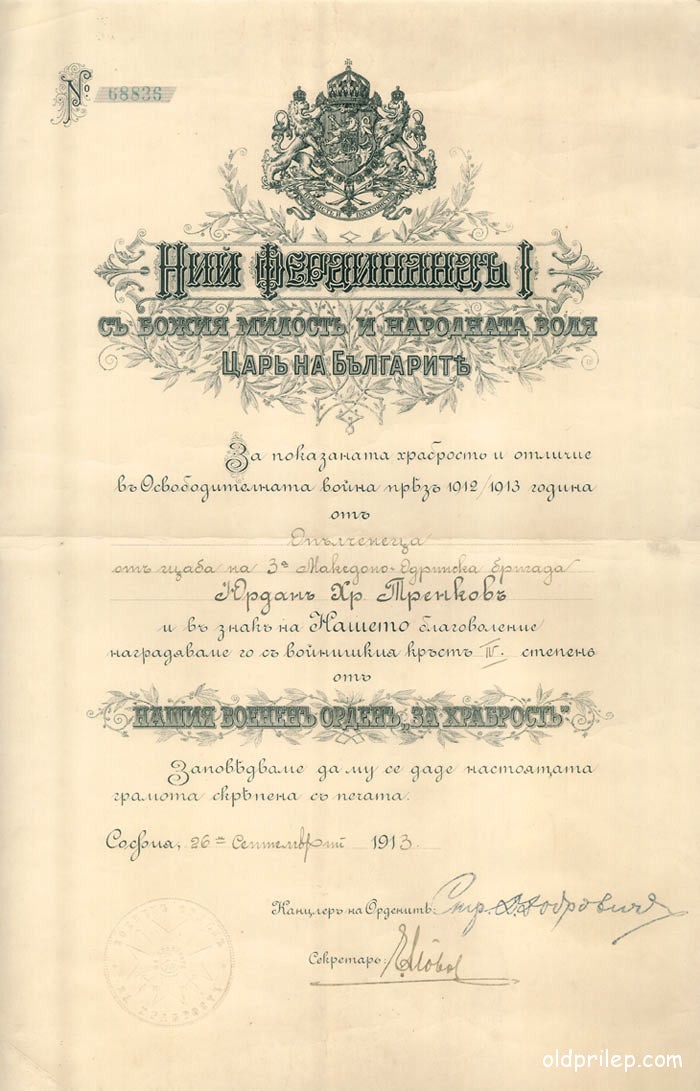 № 68836
Ний Фердинандъ I
съ Божия милость и народната воля
Царь на Българитѣ
За показаната храбрость и отличие
въ Освободителната война прѣзъ 1912/1913 година
отъ
Опълченеца
отъ щаба на 3ª Македоно-Одринска бригада
Юрданъ Хр. Тренковъ
и въ знакъ на Нашето благоволение
награждаваме го съ войнишкия кръстъ IV. степень
отъ
нашия военень орденъ „За храбрость“
Заповѣдваме да му се даде настоящата
грамота скрѣпена съ печата.
София, 26 Септемврий 1913
Канцлеръ на Орденитѣ: Стр. Добровичъ
Секретарь:
oldprilep.com